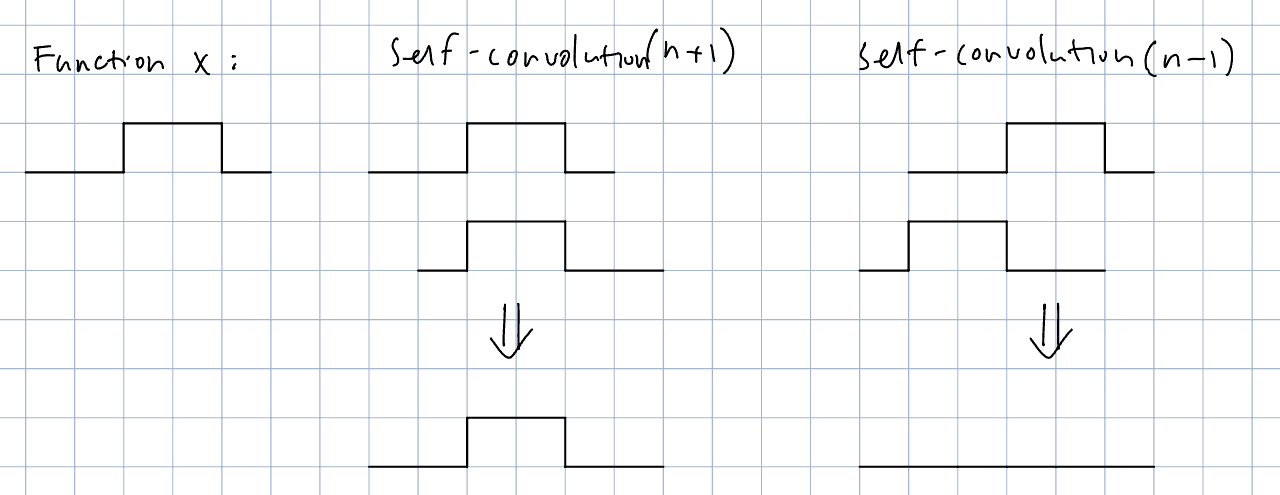 Function x :
Self-convolution(n+1)
self-convolution(n-1)